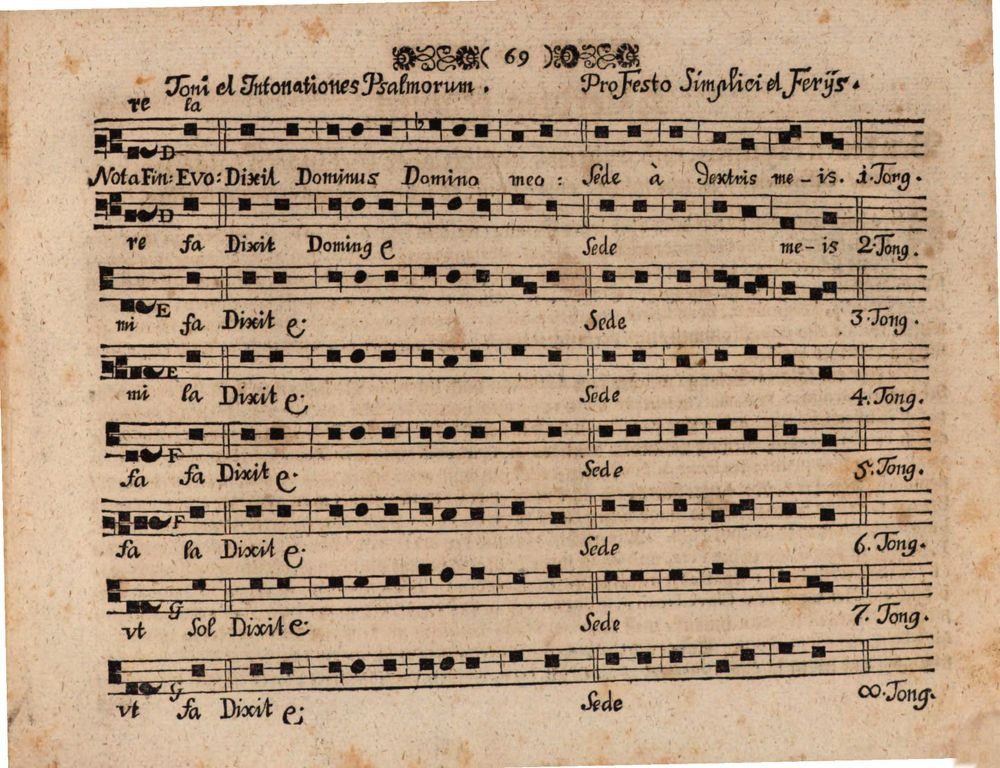 ( 69 )
Toni et Intonationes Psalmorum. Pro Festo Simplici et Ferijs.
re la
D
Nota Fin: Evo: Dixit Dominus Domino meo: Sede à dextris me-is. 1. Tong.
D
re fa Dixit Doming e Sede me-is 2. Tong.
E
mi fa Dixit e. Sede 3. Tong.
E
mi la Dixit e. Sede 4. Tong.
F
fa fa Dixit e. Sede 5. Tong.
F
fa la Dixit e. Sede 6. Tong.
G
vt Sol Dixit e. Sede 7. Tong.
G
vt fa Dixit e. Sede 8. Tong.